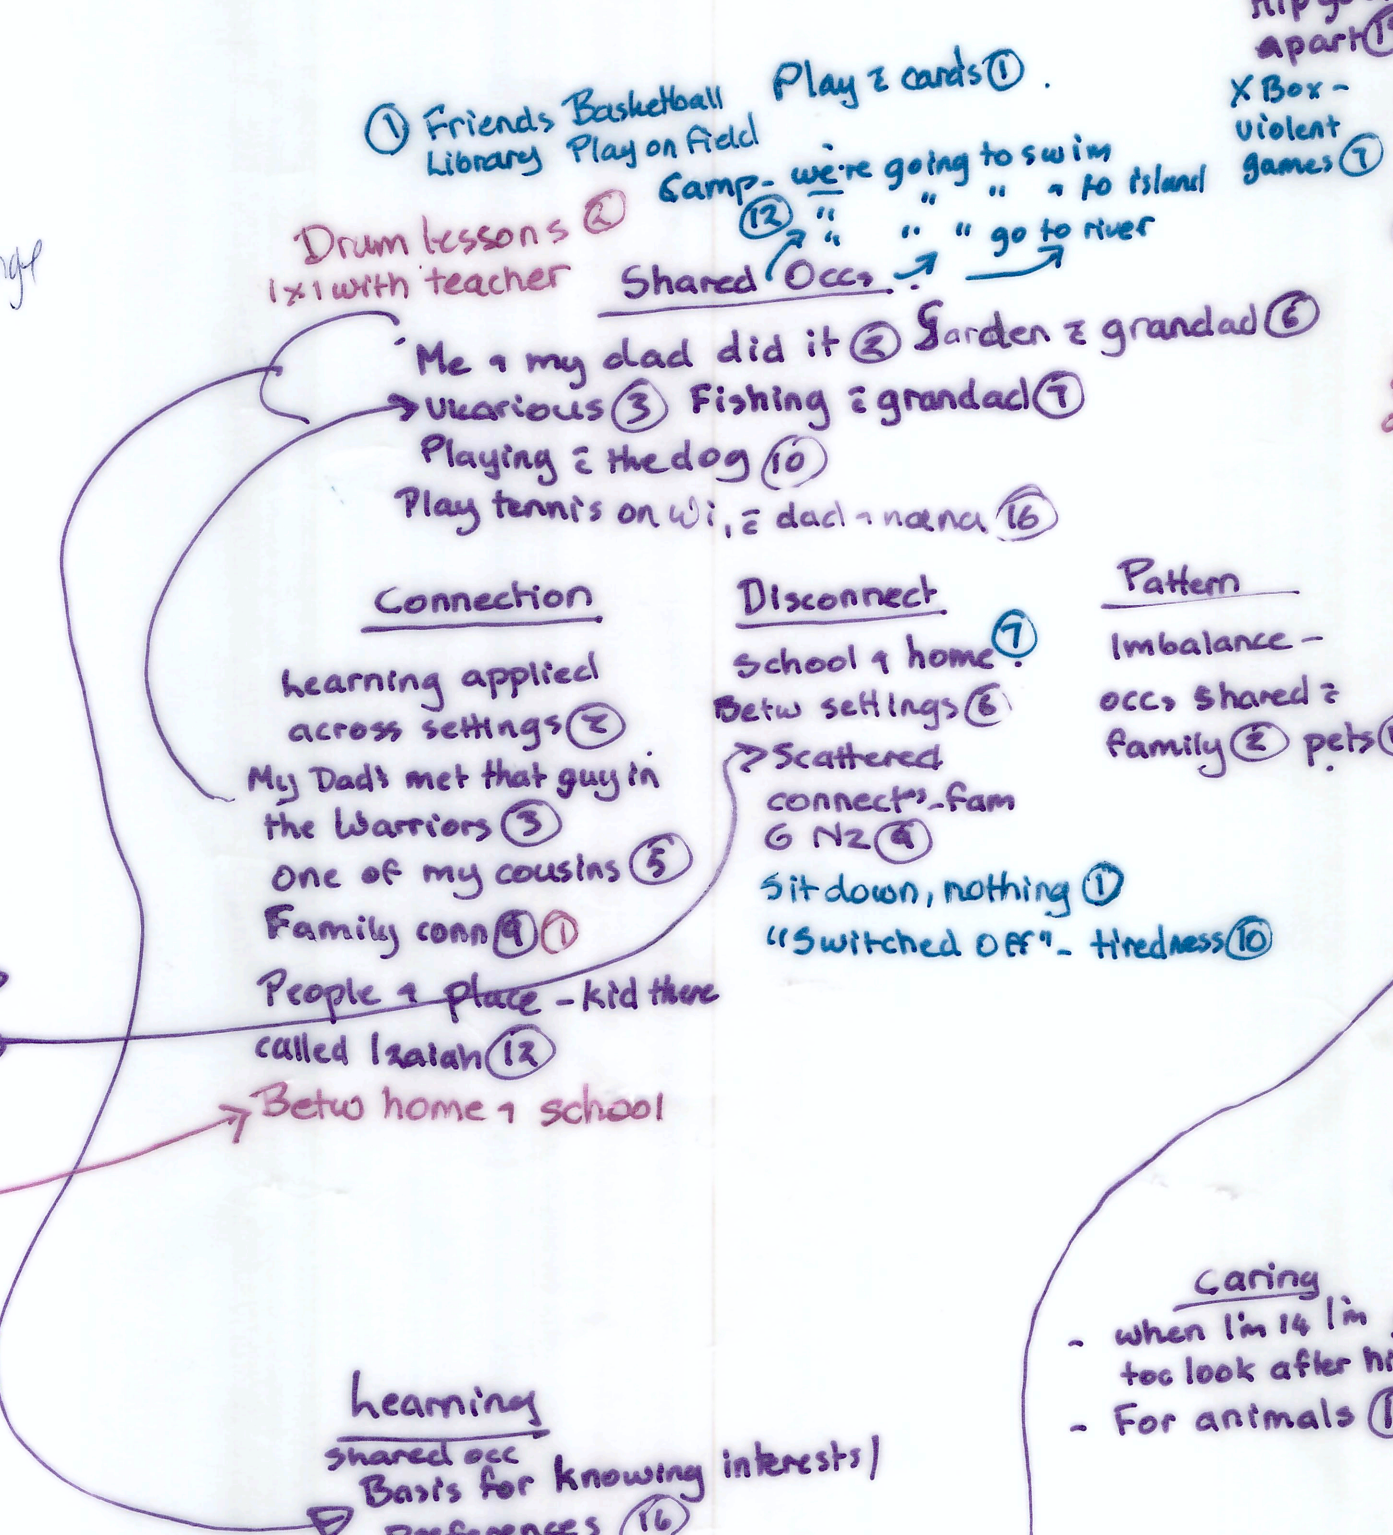 apart
X Box -
violent
games 7
① Friends Basketball Play c̄ cards ①.
Library Play on field
Camp - we're going to swim
⑫ " " " " to island
" " " go to river
Drum lessons ②
1x1 with teacher
Shared Occs
Me & my dad did it ② Garden c̄ grandad ⑥
Vicarious ③ Fishing c̄ grandad ⑦
Playing c̄ the dog ⑩
Play tennis on Wi, c̄ dad & nana ⑯
Connection
Learning applied
across settings ②
My Dad's met that guy in
the Warriors ③
one of my cousins ⑤
Family conn ⑨ ①
People & place - kid there
called Izaiah ⑫
Betw home & school
Disconnect
School & home ⑦
Betw settings ⑥
Scattered
connectns - fam
G NZ ⑨
Sit down, nothing ①
"Switched Off" - tiredness ⑩
Pattern
Imbalance -
occs shared c̄
family ② pets
Caring
- when I'm 14 I'm
too look after
- For animals
Learning
shared occ
Basis for knowing interests/
preferences ⑯